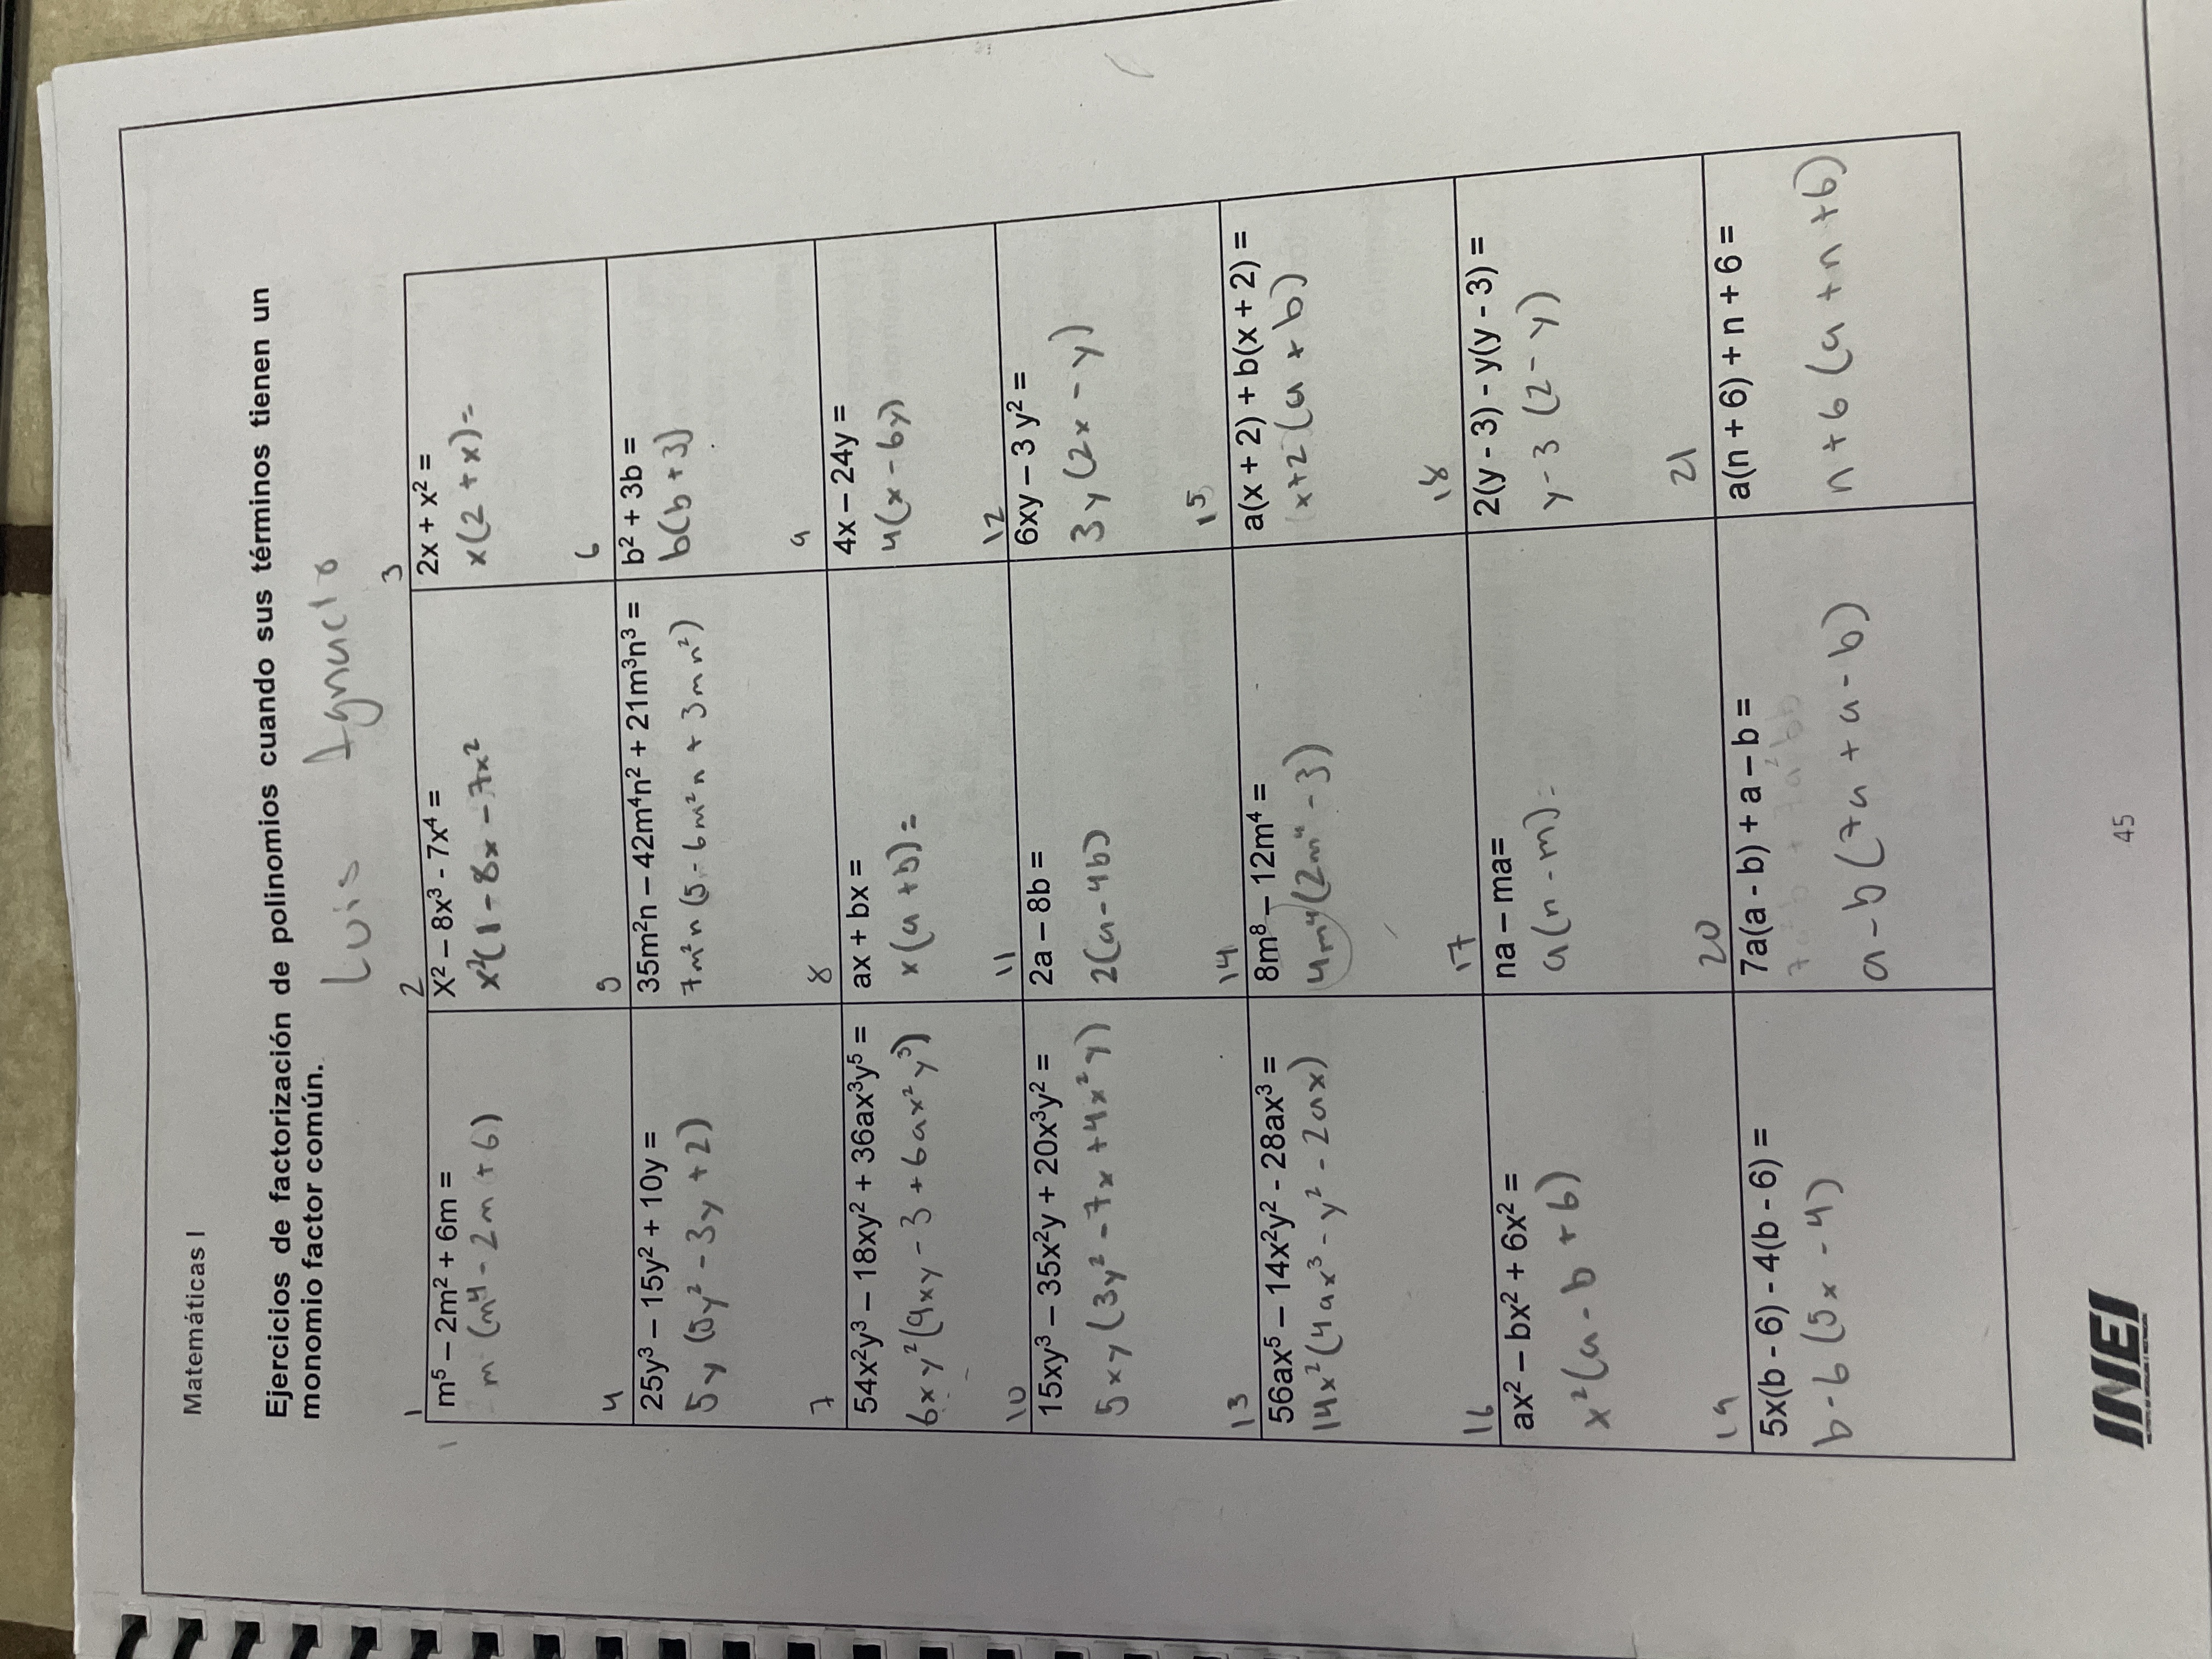 Matemáticas I
Ejercicios de factorización de polinomios cuando sus términos tienen un
monomio factor común.
Luis Ignacio
1
m⁵ – 2m² + 6m =
m (m⁴ - 2m + 6)
2
X² – 8x³ - 7x⁴ =
x²(1 - 8x - 7x²
3
2x + x² =
x(2 + x) =
4
25y³ – 15y² + 10y =
5y (5y² - 3y + 2)
5
35m²n – 42m⁴n² + 21m³n³ =
7m²n (5 - 6m²n + 3mn²)
6
b² + 3b =
b(b + 3)
7
54x²y³ – 18xy² + 36ax³y⁵ =
6xy²(9xy - 3 + 6ax²y³)
8
ax + bx =
x(a + b) =
9
4x – 24y =
4(x - 6y)
10
15xy³ – 35x²y + 20x³y² =
5xy (3y² - 7x + 4x²y)
11
2a – 8b =
2(a - 4b)
12
6xy – 3 y² =
3y (2x - y)
13
56ax⁵ – 14x²y² - 28ax³ =
14x²(4ax³ - y² - 2ax)
14
8m⁸ – 12m⁴ =
4m⁴(2m⁴ - 3)
15
a(x + 2) + b(x + 2) =
(x+2 (a + b)
16
ax² – bx² + 6x² =
x²(a - b + 6)
17
na – ma=
a(n - m) =
18
2(y - 3) - y(y - 3) =
y - 3 (2 - y)
19
5x(b - 6) - 4(b - 6) =
b - 6 (5x - 4)
20
7a(a - b) + a – b =
a - b (7a + a - b)
21
a(n + 6) + n + 6 =
n + 6 (a + n + 6)
INEI
45